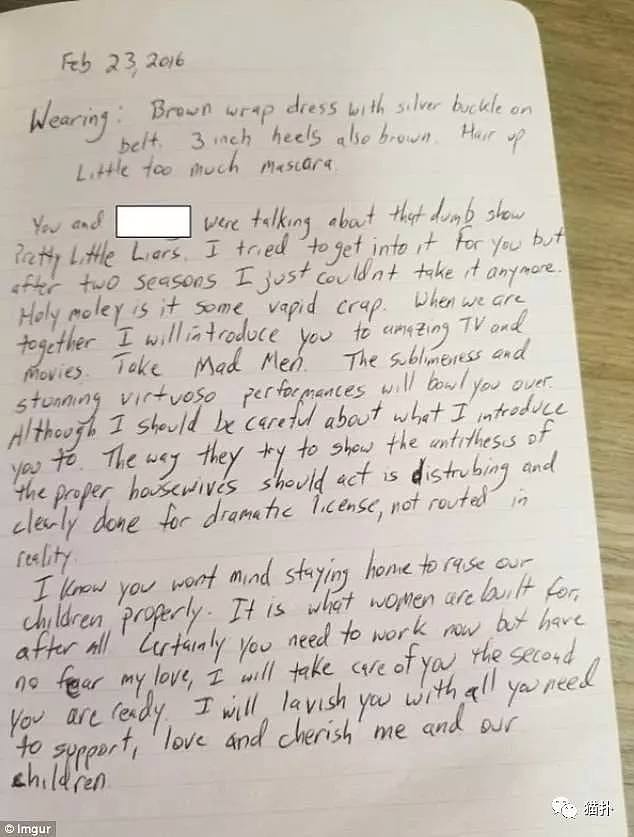 Feb 23, 2016
Wearing: Brown wrap dress with silver buckle on
belt. 3 inch heels also brown. Hair up
Little too much mascara.
You and were talking about that dumb show
Pretty Little Liars. I tried to get into it for you but
after two seasons I just couldnt take it anymore.
Holy moley is it some vapid crap. When we are
together I will introduce you to amazing TV and
movies. Take Mad Men. The sublimeness and
stunning virtuoso performances will bowl you over.
Although I should be careful about what I introduce
you to. The way they try to show the antithesis of
the proper housewives should act is distrubing and
clearly done for dramatic license, not routed in
reality.
I know you wont mind staying home to raise our
children properly. It is what women are built for,
after all. Certainly you need to work now but have
no fear my love, I will take care of you the second
you are ready. I will lavish you with all you need
to support, love and cherish me and our
children
© Imgur
猫扑